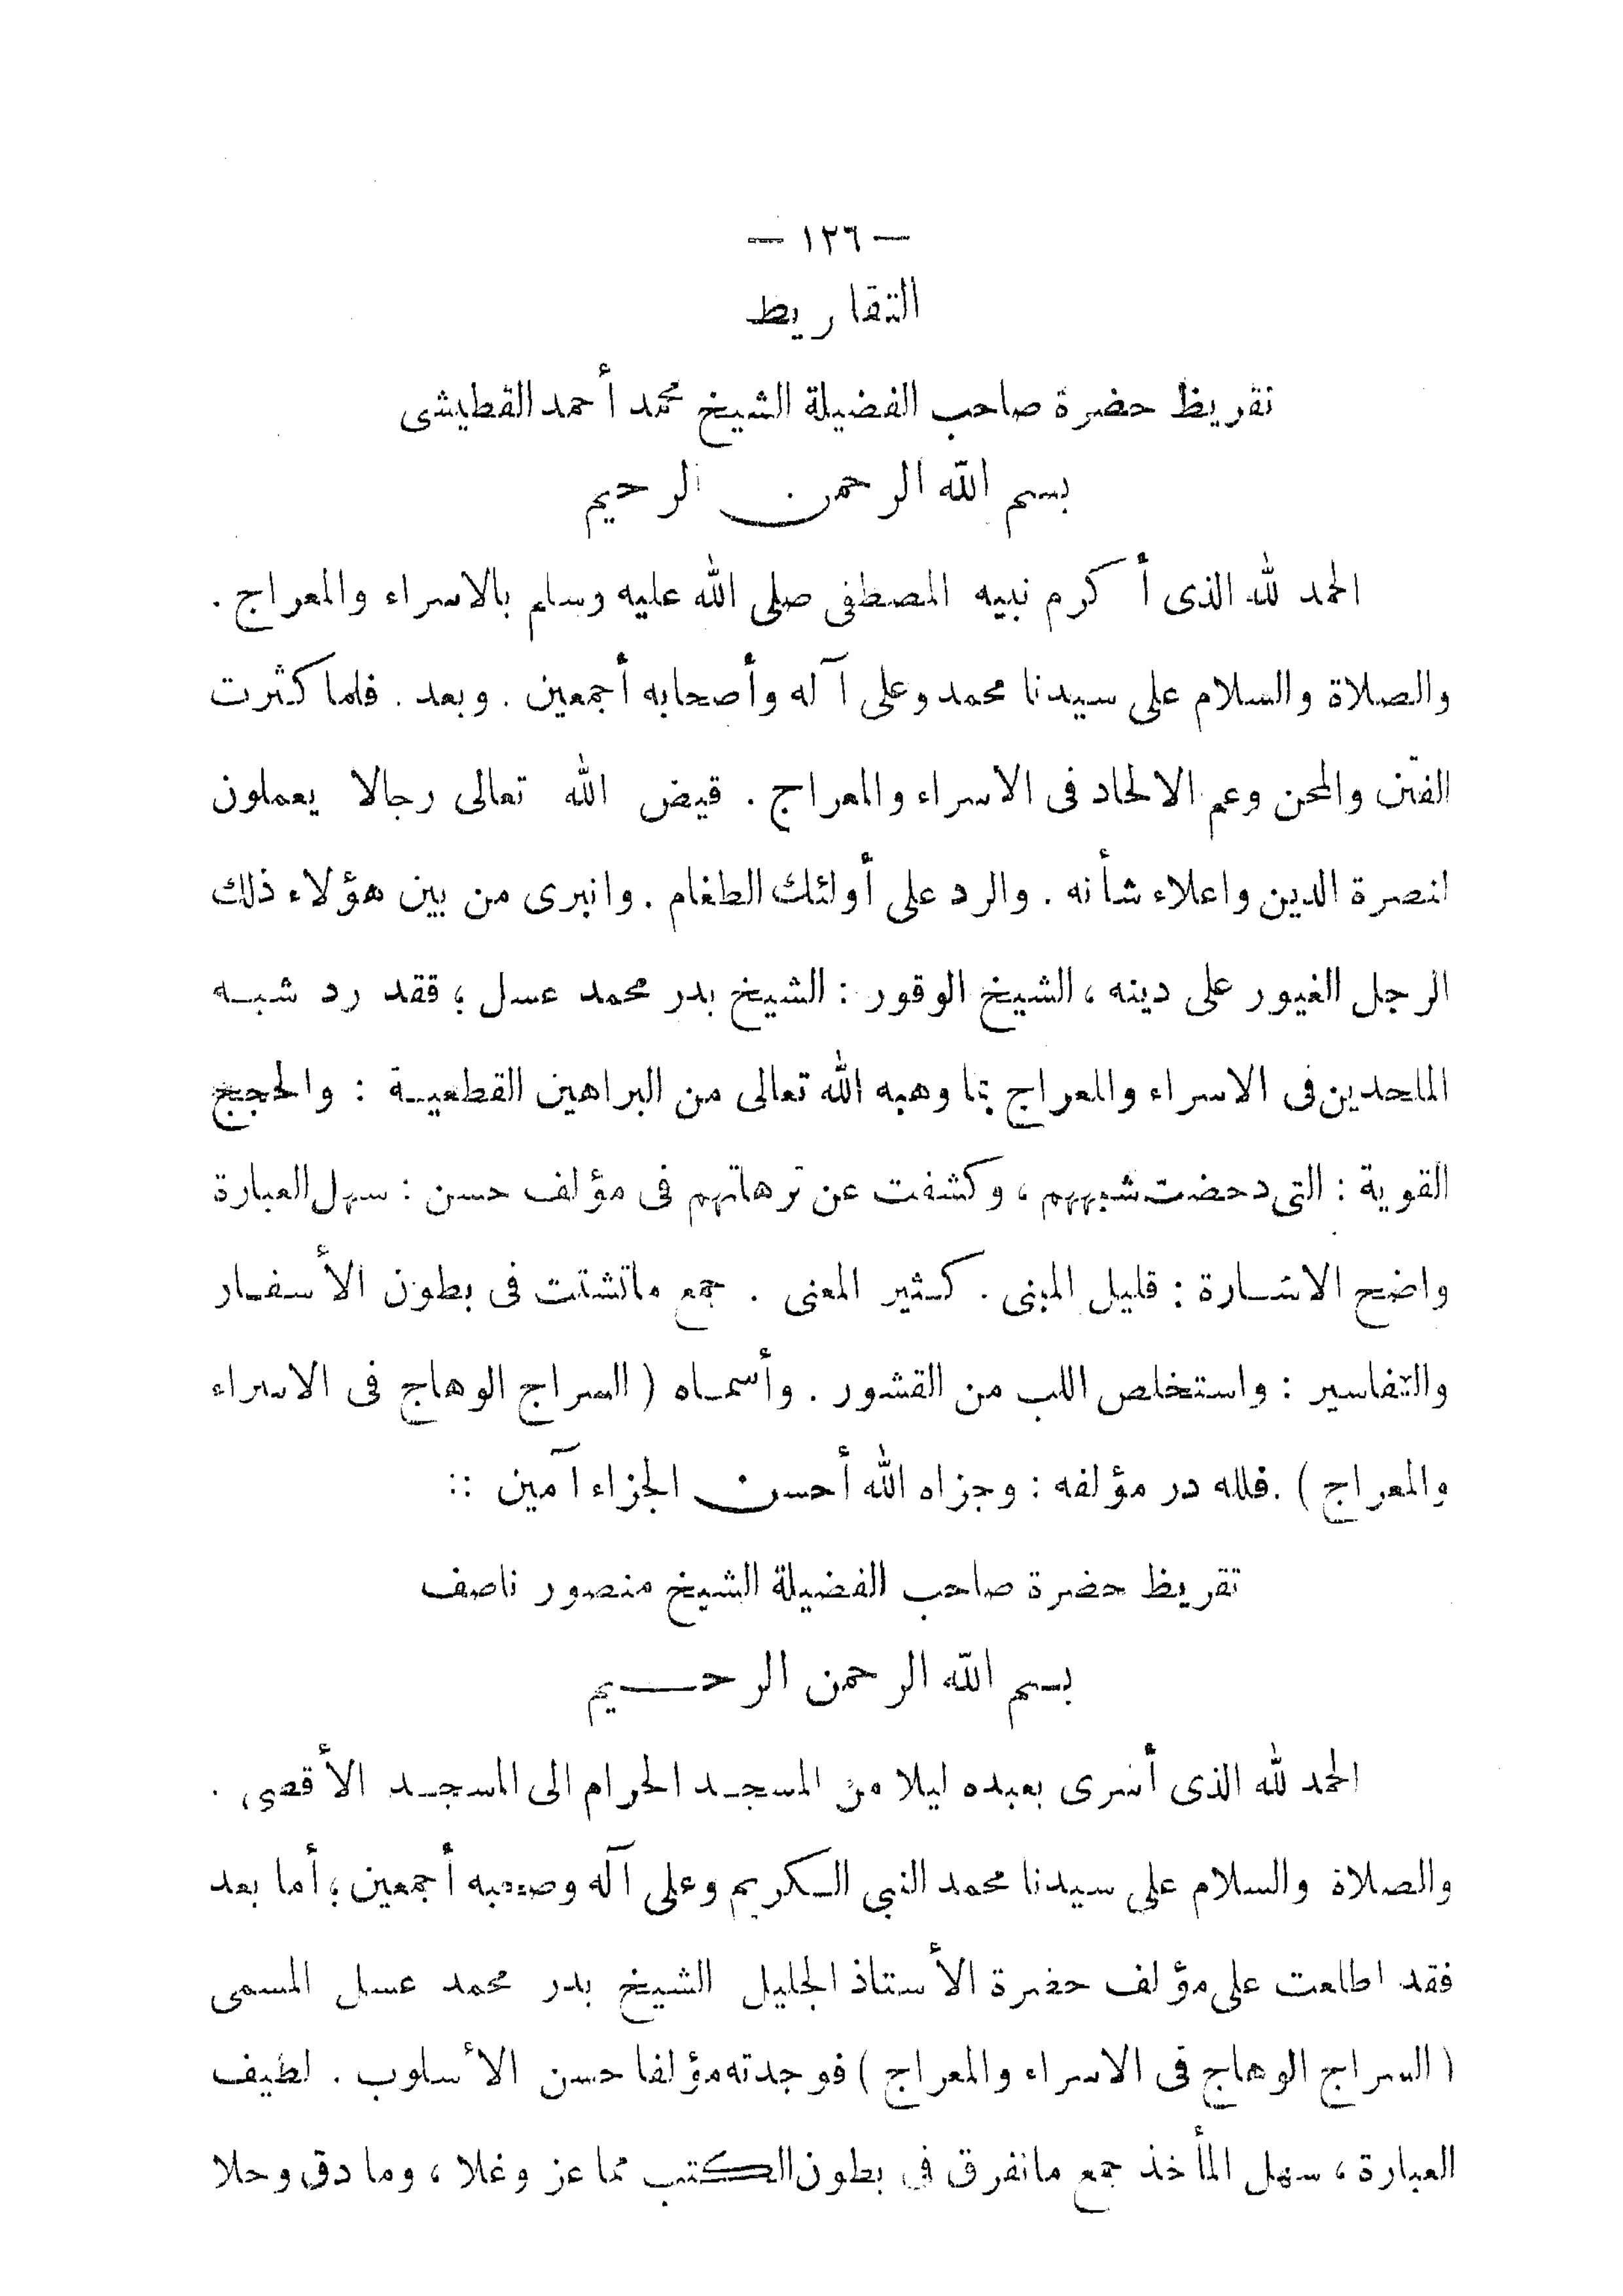 — ١٢٦ —
التقاريظ
تقريظ حضرة صاحب الفضيلة الشيخ محمد أحمد القطيشى
بسم الله الرحمن الرحيم
الحمد لله الذى أكرم نبيه المصطفى صلى الله عليه وسلم بالاسراء والمعراج .
والصلاة والسلام على سيدنا محمد وعلى آله وأصحابه أجمعين . وبعد . فلما كثرت
الفتن والمحن وعم الالحاد فى الاسراء والمعراج . قيض الله تعالى رجالا يعملون
لنصرة الدين واعلاء شأنه . والرد على أولئك الطغام . وانبرى من بين هؤلاء ذلك
الرجل الغيور على دينه ، الشيخ الوقور : الشيخ بدر محمد عسل ؛ فقد رد شبه
الملحدين فى الاسراء والمعراج بما وهبه الله تعالى من البراهين القطعية : والحجج
القوية : التى دحضت شبههم ، وكشفت عن ترهاتهم فى مؤلف حسن : سهل العبارة
واضح الاشارة : قليل المبنى . كثير المعنى . جمع ماتشتت فى بطون الأسفار
والتفاسير : واستخلص اللب من القشور . وأسماه ( السراج الوهاج فى الاسراء
والمعراج ) . فلله در مؤلفه : وجزاه الله أحسن الجزاء آمين ::
تقريظ حضرة صاحب الفضيلة الشيخ منصور ناصف
بسم الله الرحمن الرحيم
الحمد لله الذى أسرى بعبده ليلا من المسجد الحرام الى المسجد الأقصى .
والصلاة والسلام على سيدنا محمد النبى الكريم وعلى آله وصحبه أجمعين ؛ أما بعد
فقد اطلعت على مؤلف حضرة الأستاذ الجليل الشيخ بدر محمد عسل المسمى
( السراج الوهاج فى الاسراء والمعراج ) فوجدته مؤلفا حسن الأسلوب . لطيف
العبارة ، سهل المأخذ جمع ماتفرق فى بطون الكتب مما عز وغلا ، وما دق وحلا